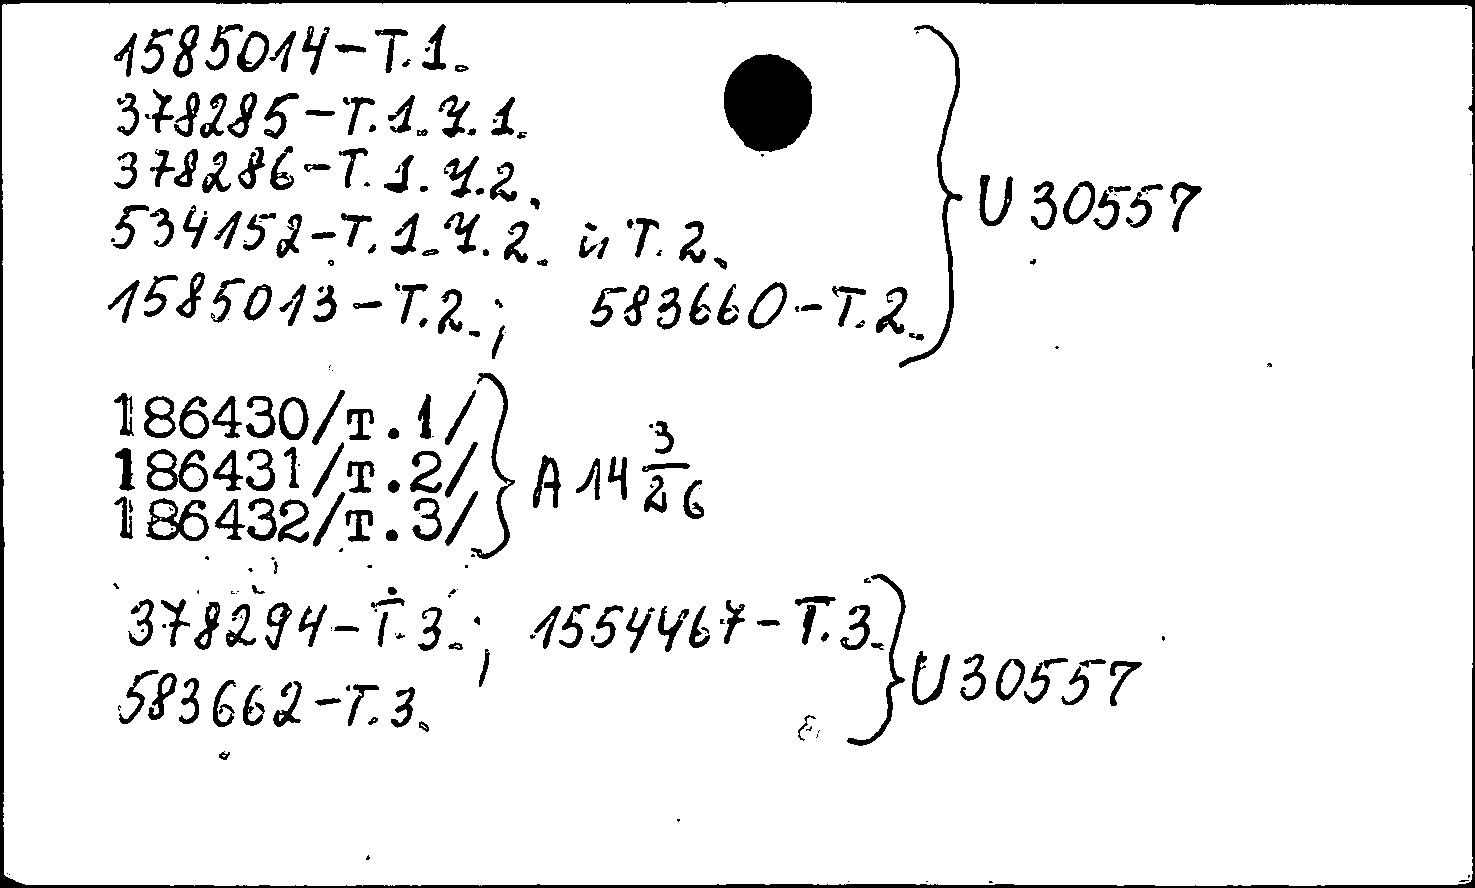 1585014-Т.1.
378285-Т.1.Ч.1.
378286-Т.1.Ч.2.
534152-Т.1.Ч.2. и Т.2.
U 30557
1585013-Т.2.; 583660-Т.2.
186430/т.1/
186431/т.2/
А 14 3/26
186432/т.3/
378294-Т.3.; 1554467-Т.3.
U 30557
583662-Т.3.